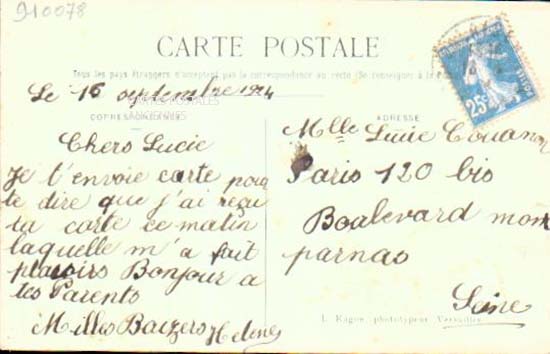 910078
CARTE POSTALE
Tous les pays étrangers n'acceptent pas la correspondance au recto (Se renseigner à la
Le 16 Septembre 1924
CARTES POSTALES
ANCIENNES
CORRESPONDANCE
ADRESSE
Chers Lucie
Je t'envoie carte pour
te dire que j'ai reçu
ta carte ce matin
laquelle m'a fait
plaisirs Bonjour a
tes Parents
Milles Baizers Helene
Mlle Lucie
Paris 120 bis
Boalevard mon
parnas
Seine
phototypeur Versailles
25c
POSTES